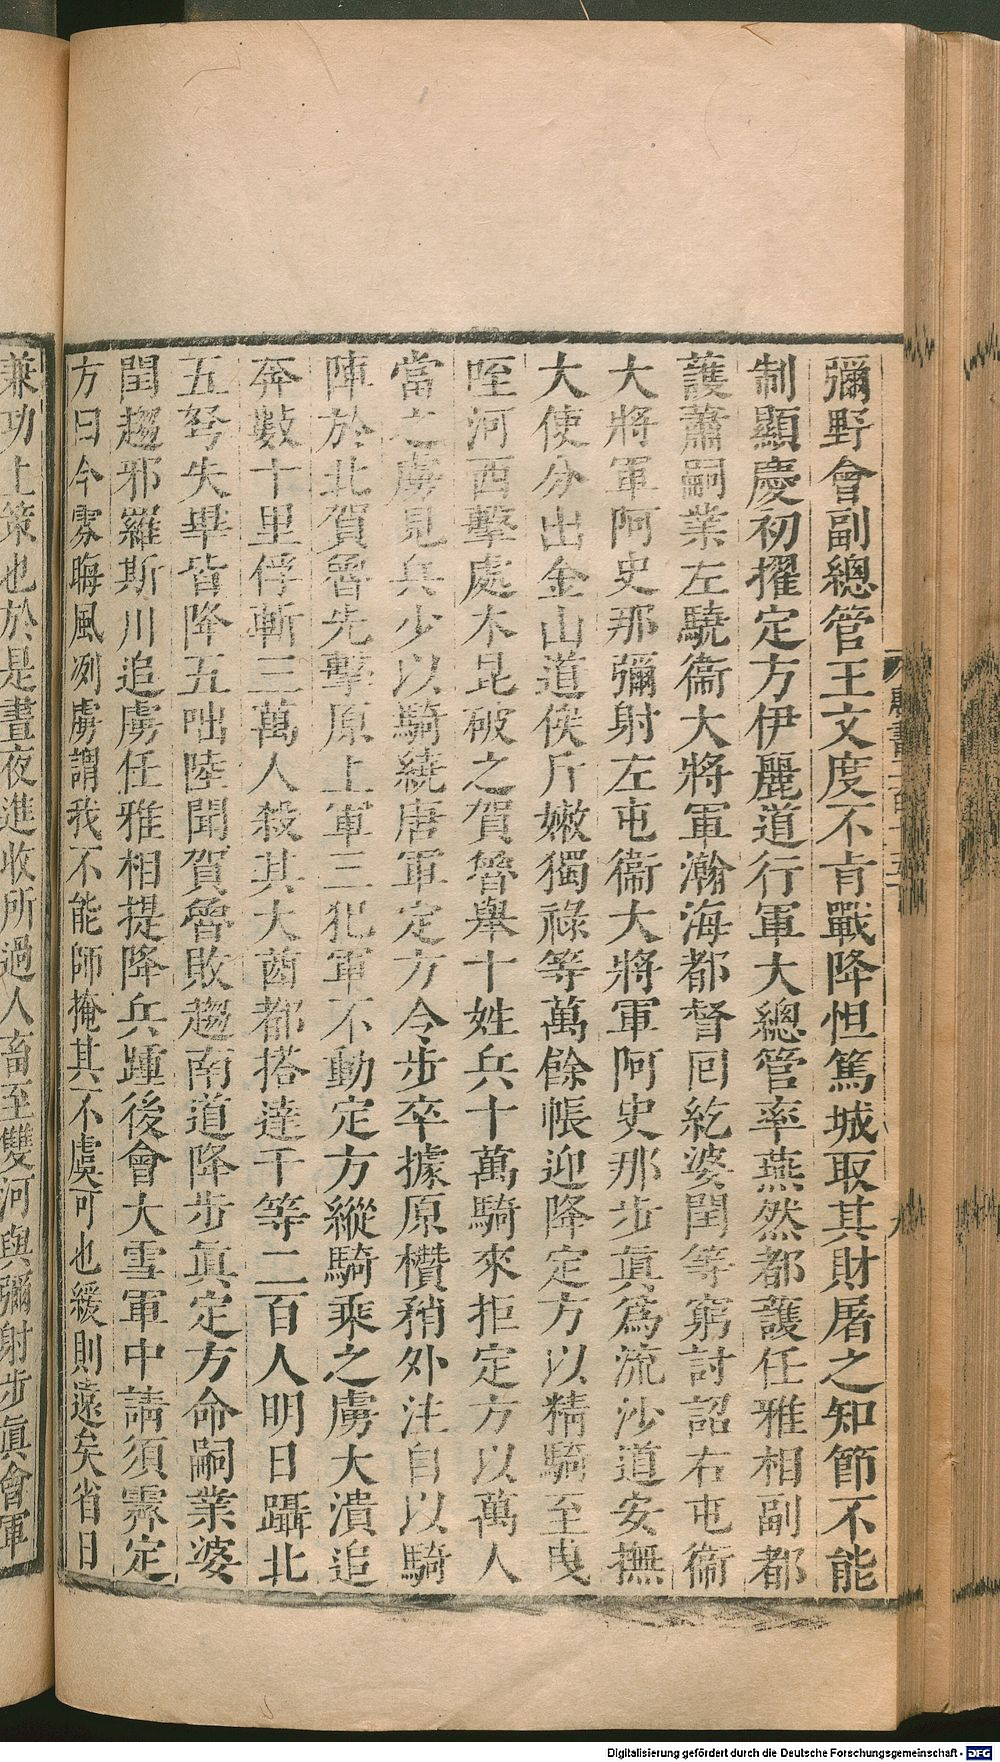 彌野會副總管王文度不肯戰降怛篤城取其財屠之知節不能
制顯慶初擢定方伊麗道行軍大總管率燕然都護任雅相副都
護蕭嗣業左驍衞大將軍瀚海都督囘紇婆閏等窮討詔右屯衞
大將軍阿史那彌射左屯衞大將軍阿史那步眞爲流沙道安撫
大使分出金山道俟斤嫩獨祿等萬餘帳迎降定方以精騎至曳
咥河西擊處木昆破之賀魯舉十姓兵十萬騎來拒定方以萬人
當之虜見兵少以騎繞唐軍定方令步卒據原欑矟外注自以騎
陣於北賀魯先擊原上軍三犯軍不動定方縱騎乘之虜大潰追
奔數十里俘斬三萬人殺其大酋都搭達干等二百人明日躡北
五弩失畢皆降五咄陸聞賀魯敗趨南道降步眞定方命嗣業婆
閏趨邪羅斯川追虜任雅相提降兵踵後會大雪軍中請須霽定
方曰今雰晦風冽虜謂我不能師掩其不虞可也緩則遠矣省日
兼功上策也於是晝夜進收所過人畜至雙河與彌射步眞會軍
Digitalisierung gefördert durch die Deutsche Forschungsgemeinschaft - DFG